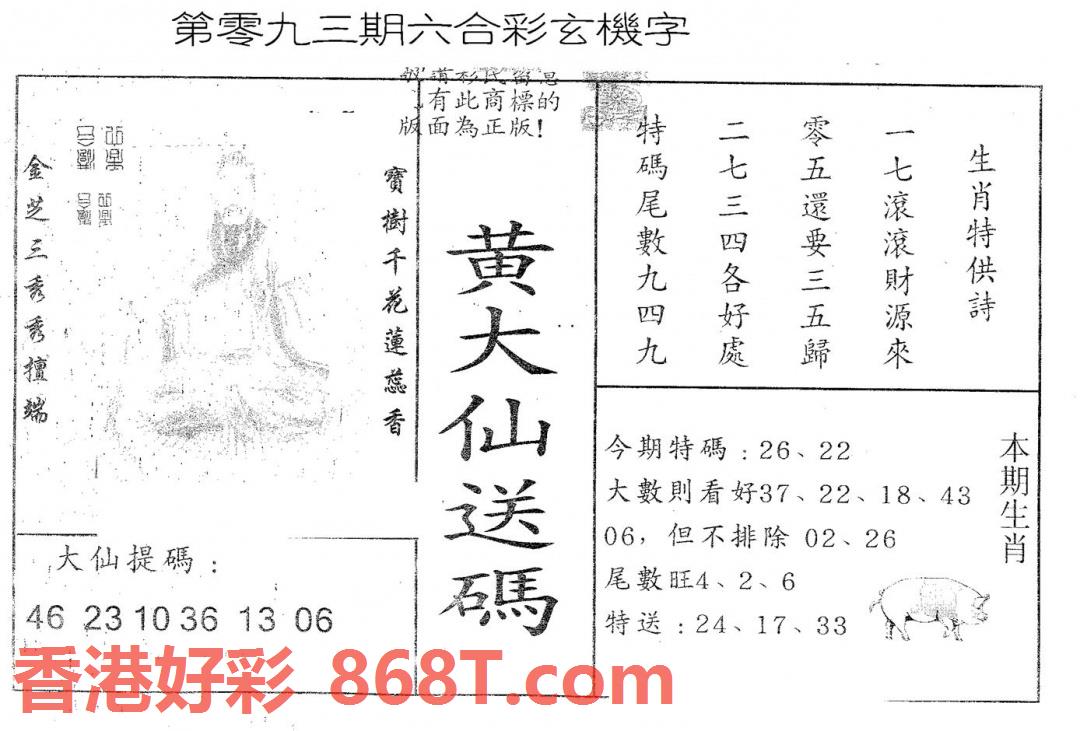 第零九三期六合彩玄機字
有此商標的
版面為正版!
金芝三秀秀擅端
寶樹千花蓮蕊香
黃大仙送碼
生肖特供詩
一七滾滾財源來
零五還要三五歸
二七三四各好處
特碼尾數九四九
本期生肖
今期特碼:26、22
大數則看好37、22、18、43
06,但不排除 02、26
尾數旺4、2、6
特送:24、17、33
大仙提碼:
46 23 10 36 13 06
香港好彩 868T.com